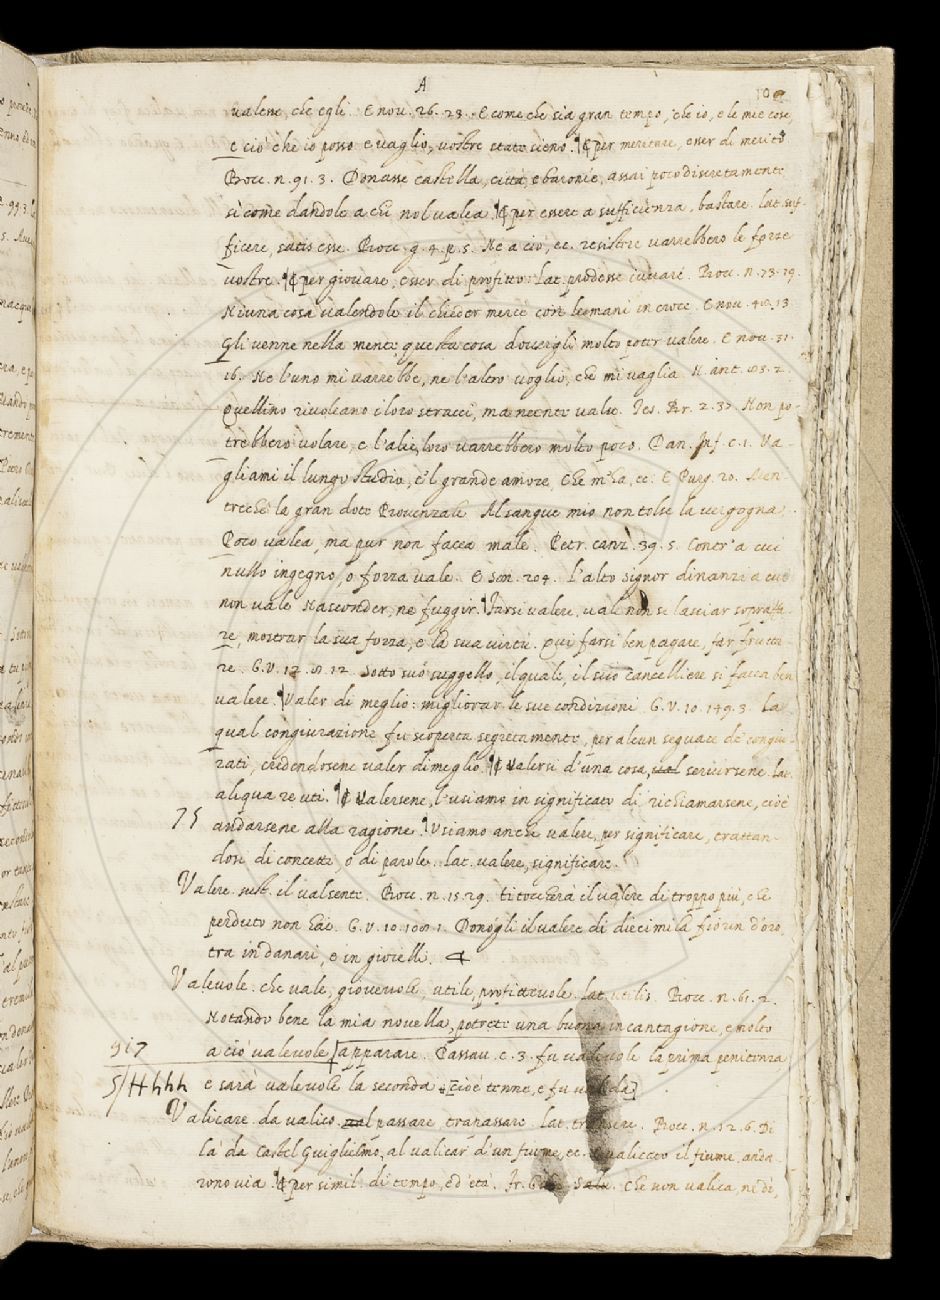 A
valere, che egli. E nov. 26. 23. E come che sia gran tempo, che io, e le mie cose,
e ciò che io posso e vaglio, vostre state sieno. ¶ ₵ per meritare, esser di merito
Bocc. n. 91. 3. Donasse castella, città, e baronie, assai poco discretamente
sì come dandole a chi nol valea. ¶ ₵ per essere a sufficienza, bastare. lat. suf-
ficere, satis esse. Bocc. g. 4. p. 5. Ne a cio, ec. resistere varrebbero le forze
vostre. ¶ ₵ per giovare, esser di profitto. lat. prodesse iuvari. Bocc. n. 73. 19.
Niuna cosa valendole il chieder mercè con le mani in croce. E nov. 40. 13
gli venne nella mente questa cosa dovergli molto poter valere. E nov. 31.
16. Ne l'uno mi varrebbe, ne l'altro voglio, che mi vaglia. N. ant. 83. 2.
Quellino rivoleano i loro stracci, ma neente valse. Tes. Br. 2. 37. Non po-
trebbero volare, e l'alie loro varrebbero molto poco. Dan. Inf. c. 1. Va-
gliami il lungo studio, e'l grande amore, Che m'ha, ec. E Purg. 20. Men-
treche la gran dote Provenzale Al sangue mio non tolse la vergogna
Poco valea, ma pur non facea male. Petr. canz. 39. 5. Contr'a cui
nullo ingegno, o forza vale. E son. 204. L'alto signor dinanzi a cui
non vale Nasconder, ne fuggir. ¶ Farsi valere, vale non si lasciar sopraffa-
re, mostrar la sua forza, e la sua virtù. qui farsi ben pagare, far frutta-
re. G. V. 12. 8. 12. Sotto suo suggello, il quale, il suo cancelliere si facea ben
valere. ¶ Valer di meglio: migliorar le sue condizioni. G. V. 10. 149. 3. La
qual congiurazione fu scoperta segretamente, per alcun seguace de' congiu-
rati, credendosene valer di meglio. ¶ ₵ Valersi d'una cosa, val servirsene. lat.
aliqua re uti. ¶ ₵ Valersene, l'usiamo in significato di richiamarsene, cioè
75 andarsene alla ragione. ¶ Usiamo anche valere, per significare, trattan-
dosi di concetti, o di parole. lat. valere, significare.
Valere. sust. il valsente. Bocc. n. 15. 29. ti toccherà il valere di troppo più, che
perduto non hai. G. V. 10. 108. 1. Donògli il valere di diecimila fiorin d'oro,
tra in danari, e in gioielli.
Valevole. che vale, giovevole, utile, profittevole. lat. utilis. Bocc. n. 61. 2.
Notando bene la mia novella, potrete una buona incantagione, e molto
917 a ciò valevole apparare. Passav. c. 3. fu valevole la prima penitenza
5/Hhhh e sarà valevole la seconda cioè tenne, e fu
Valicare. da valico. val passare, trapassare. lat. transire. Bocc. n. 12. 6. Di
là da Castel Guiglielmo, al valicar d'un fiume, ec. E valicato il fiume, anda-
rono via. ¶ ₵ per simil. di tempo, ed età. Fr. Salu. Che non valica, ne dì,